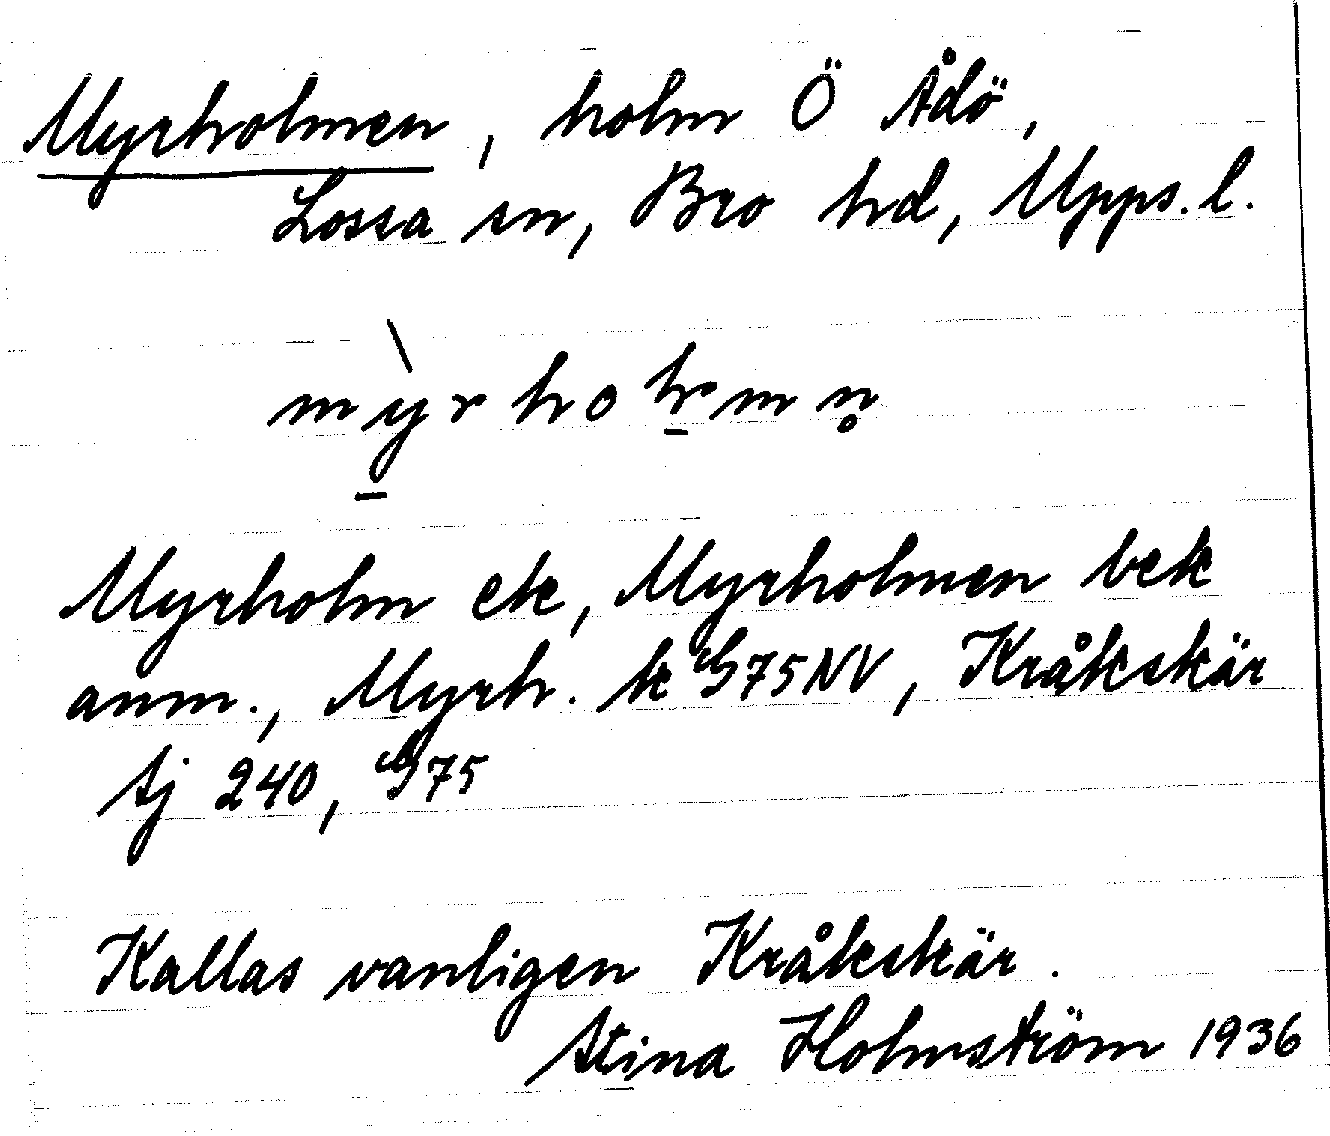 Myrholmen, holm Ö Ådö,
Lossa sn, Bro hd, Upps. l.
mỳ̱rhoḻmn̥
Myrholm ek, Myrholmen bek
anm., Myrh. k G75NV, Kråkskär
Sj 240, G75
Kallas vanligen Kråkskär.
Stina Holmström 1936